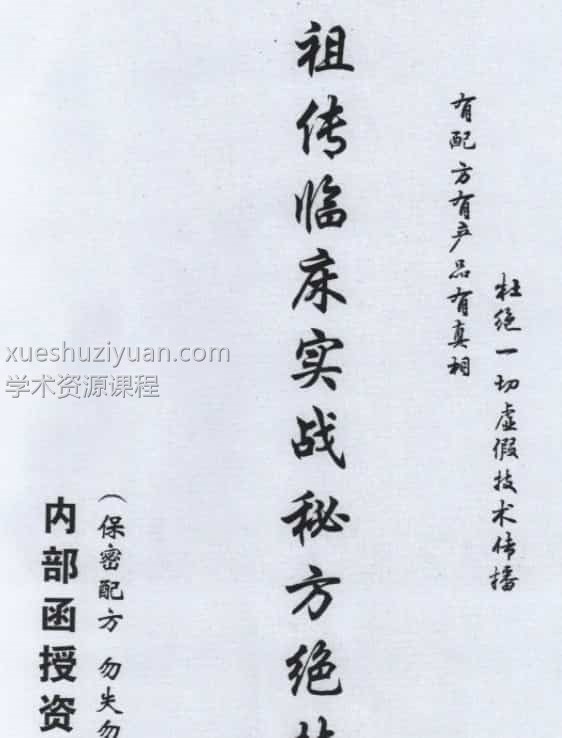 杜绝一切虚假技术传播
有配方有产品有真相
祖传临床实战秘方绝
(保密配方 勿失勿
内部函授资
xueshuziyuan.com
学术资源课程